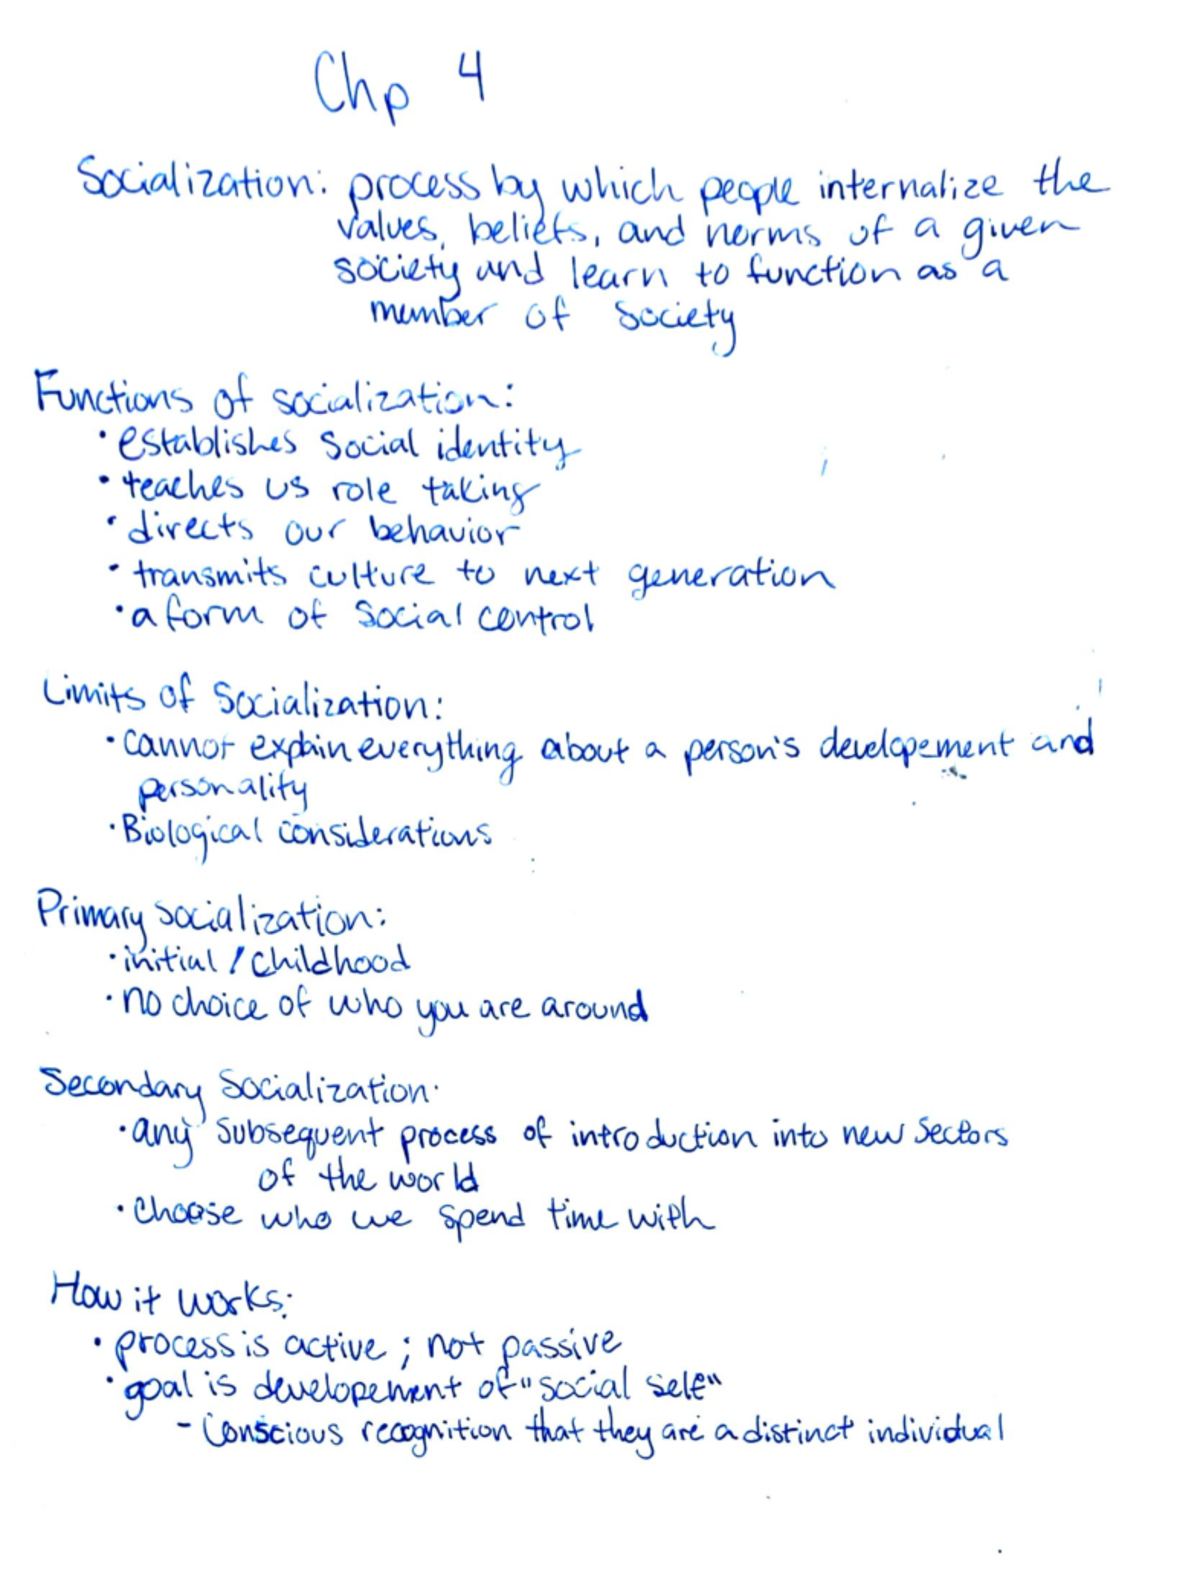 Chp 4
Socialization: process by which people internalize the
values, beliefs, and norms of a given
society and learn to function as a
member of society
Functions of socialization:
• establishes social identity
• teaches us role taking
• directs our behavior
• transmits culture to next generation
• a form of social control
Limits of Socialization:
• cannot explain everything about a person's developement and
personality
• Biological considerations
Primary socialization:
• initial / childhood
• no choice of who you are around
Secondary Socialization:
• any subsequent process of introduction into new sectors
of the world
• choose who we spend time with
How it works:
• process is active ; not passive
• goal is developement of "social self"
- conscious recognition that they are a distinct individual